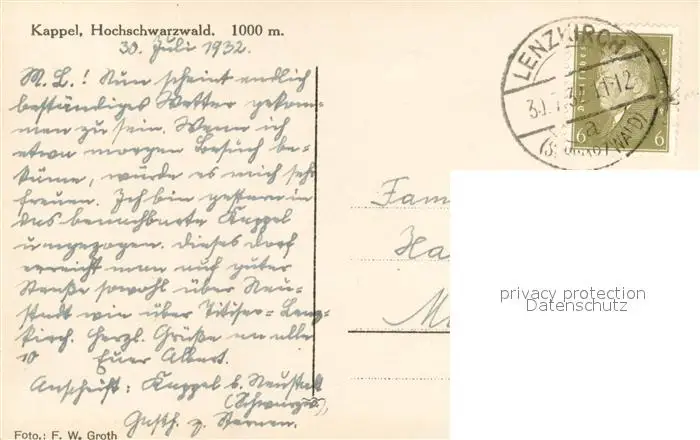 Kappel, Hochschwarzwald. 1000 m.
30. Juli 1932.
M. L.! Nun scheint endlich
beständiges Wetter gekom-
men zu sein. Wenn ich
etwa morgen Besuch be-
käme, würde es mich sehr
freuen. Ich bin gestern in
das benachbarte Kappel
umgezogen. Dieses Dorf
erreicht man auf guter
Straße sowohl über Neu-
stadt wie über Titisee-Lenz-
kirch. Herzl. Grüße an alle
Euer Albert.
Anschrift: Kappel b. Neustadt
(Schwarzw.),
Gasth. z. Sternen.
Foto.: F. W. Groth
LENZKIRCH
11-12
a
(SCHWARZWALD)
6 6
Fam
Ha
privacy protection
Datenschutz